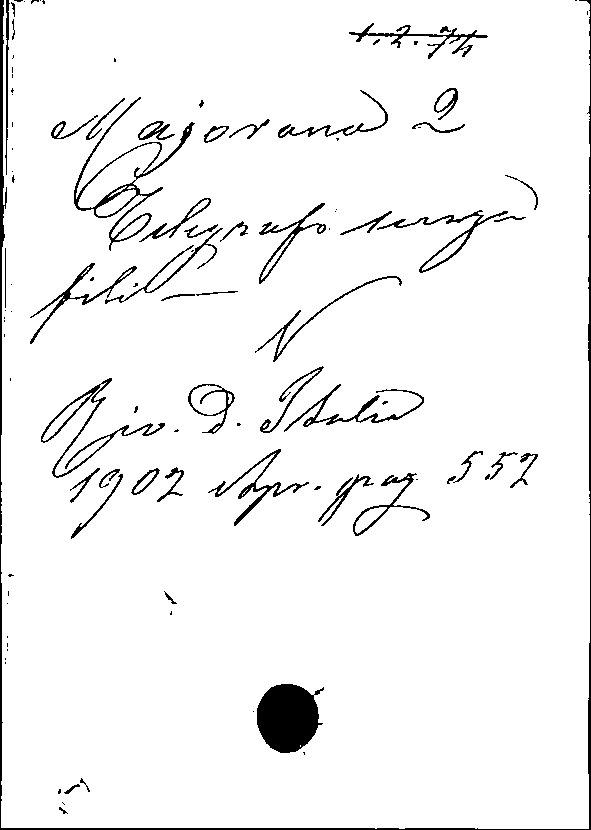 1.2.74
Majorana Q
Telegrafo senza
fili —
Riv. D. Italia
1902 Apr. pag 552